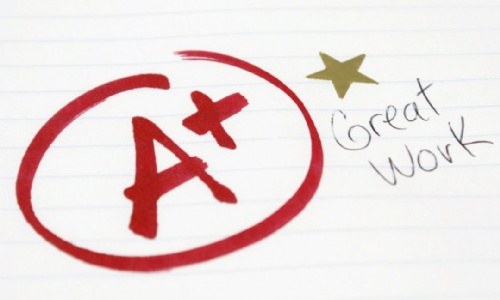 A+
Great
Work